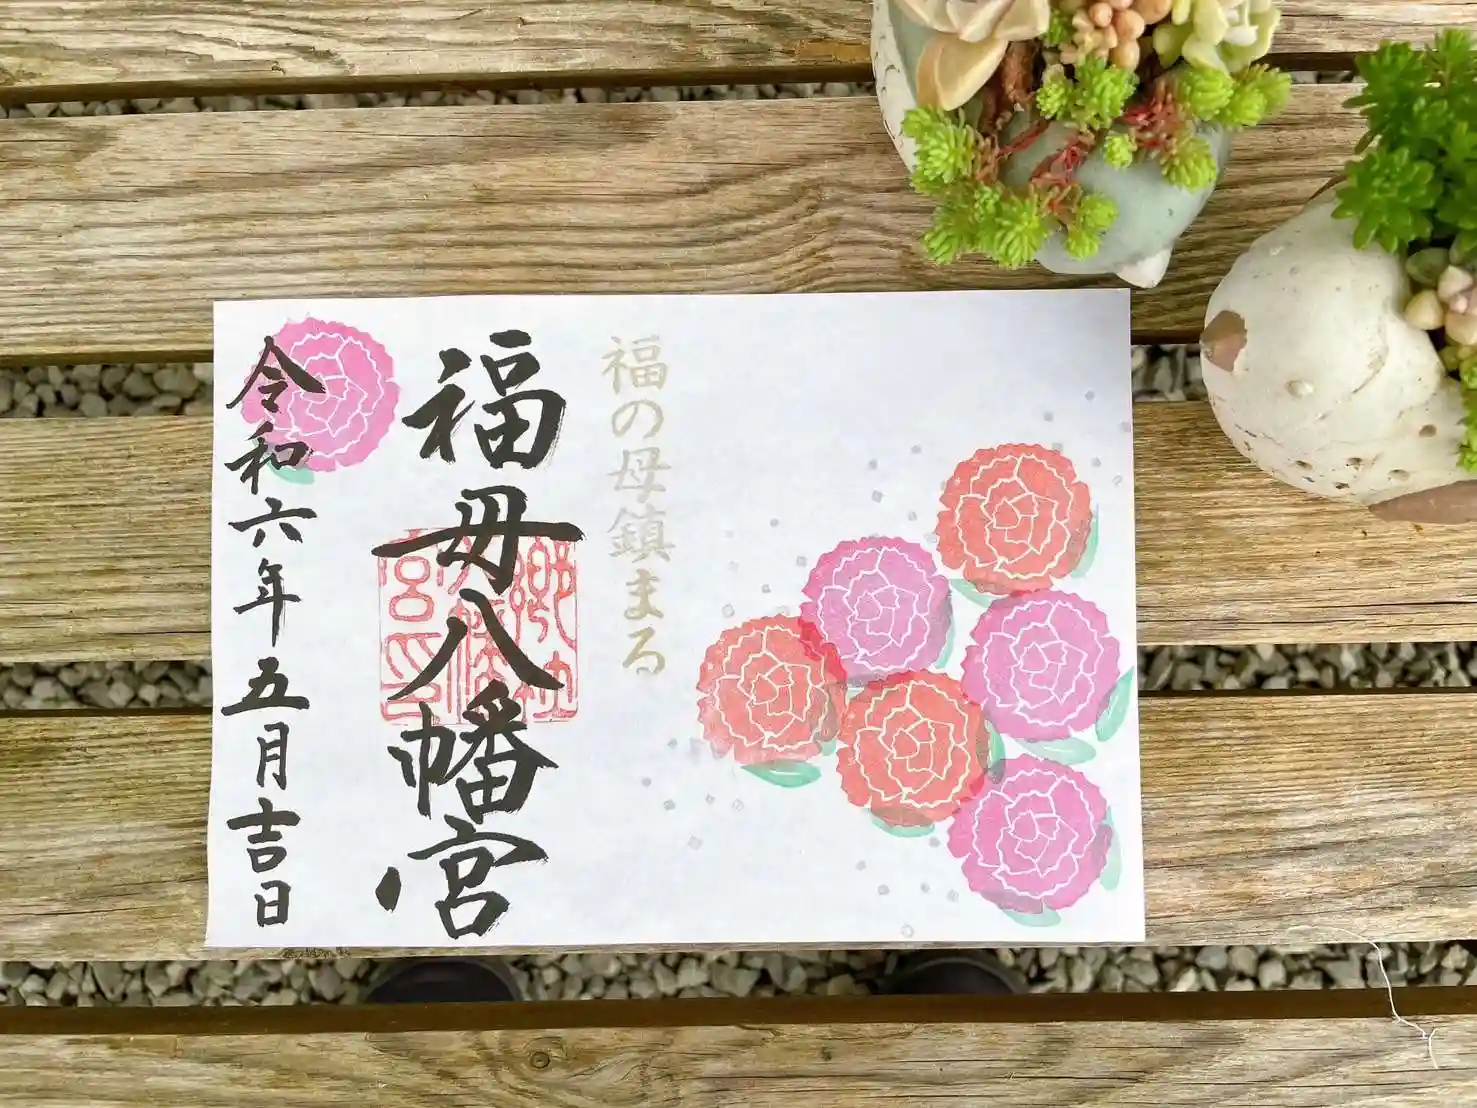 福の母鎮まる
福母八幡宮
令和六年五月吉日